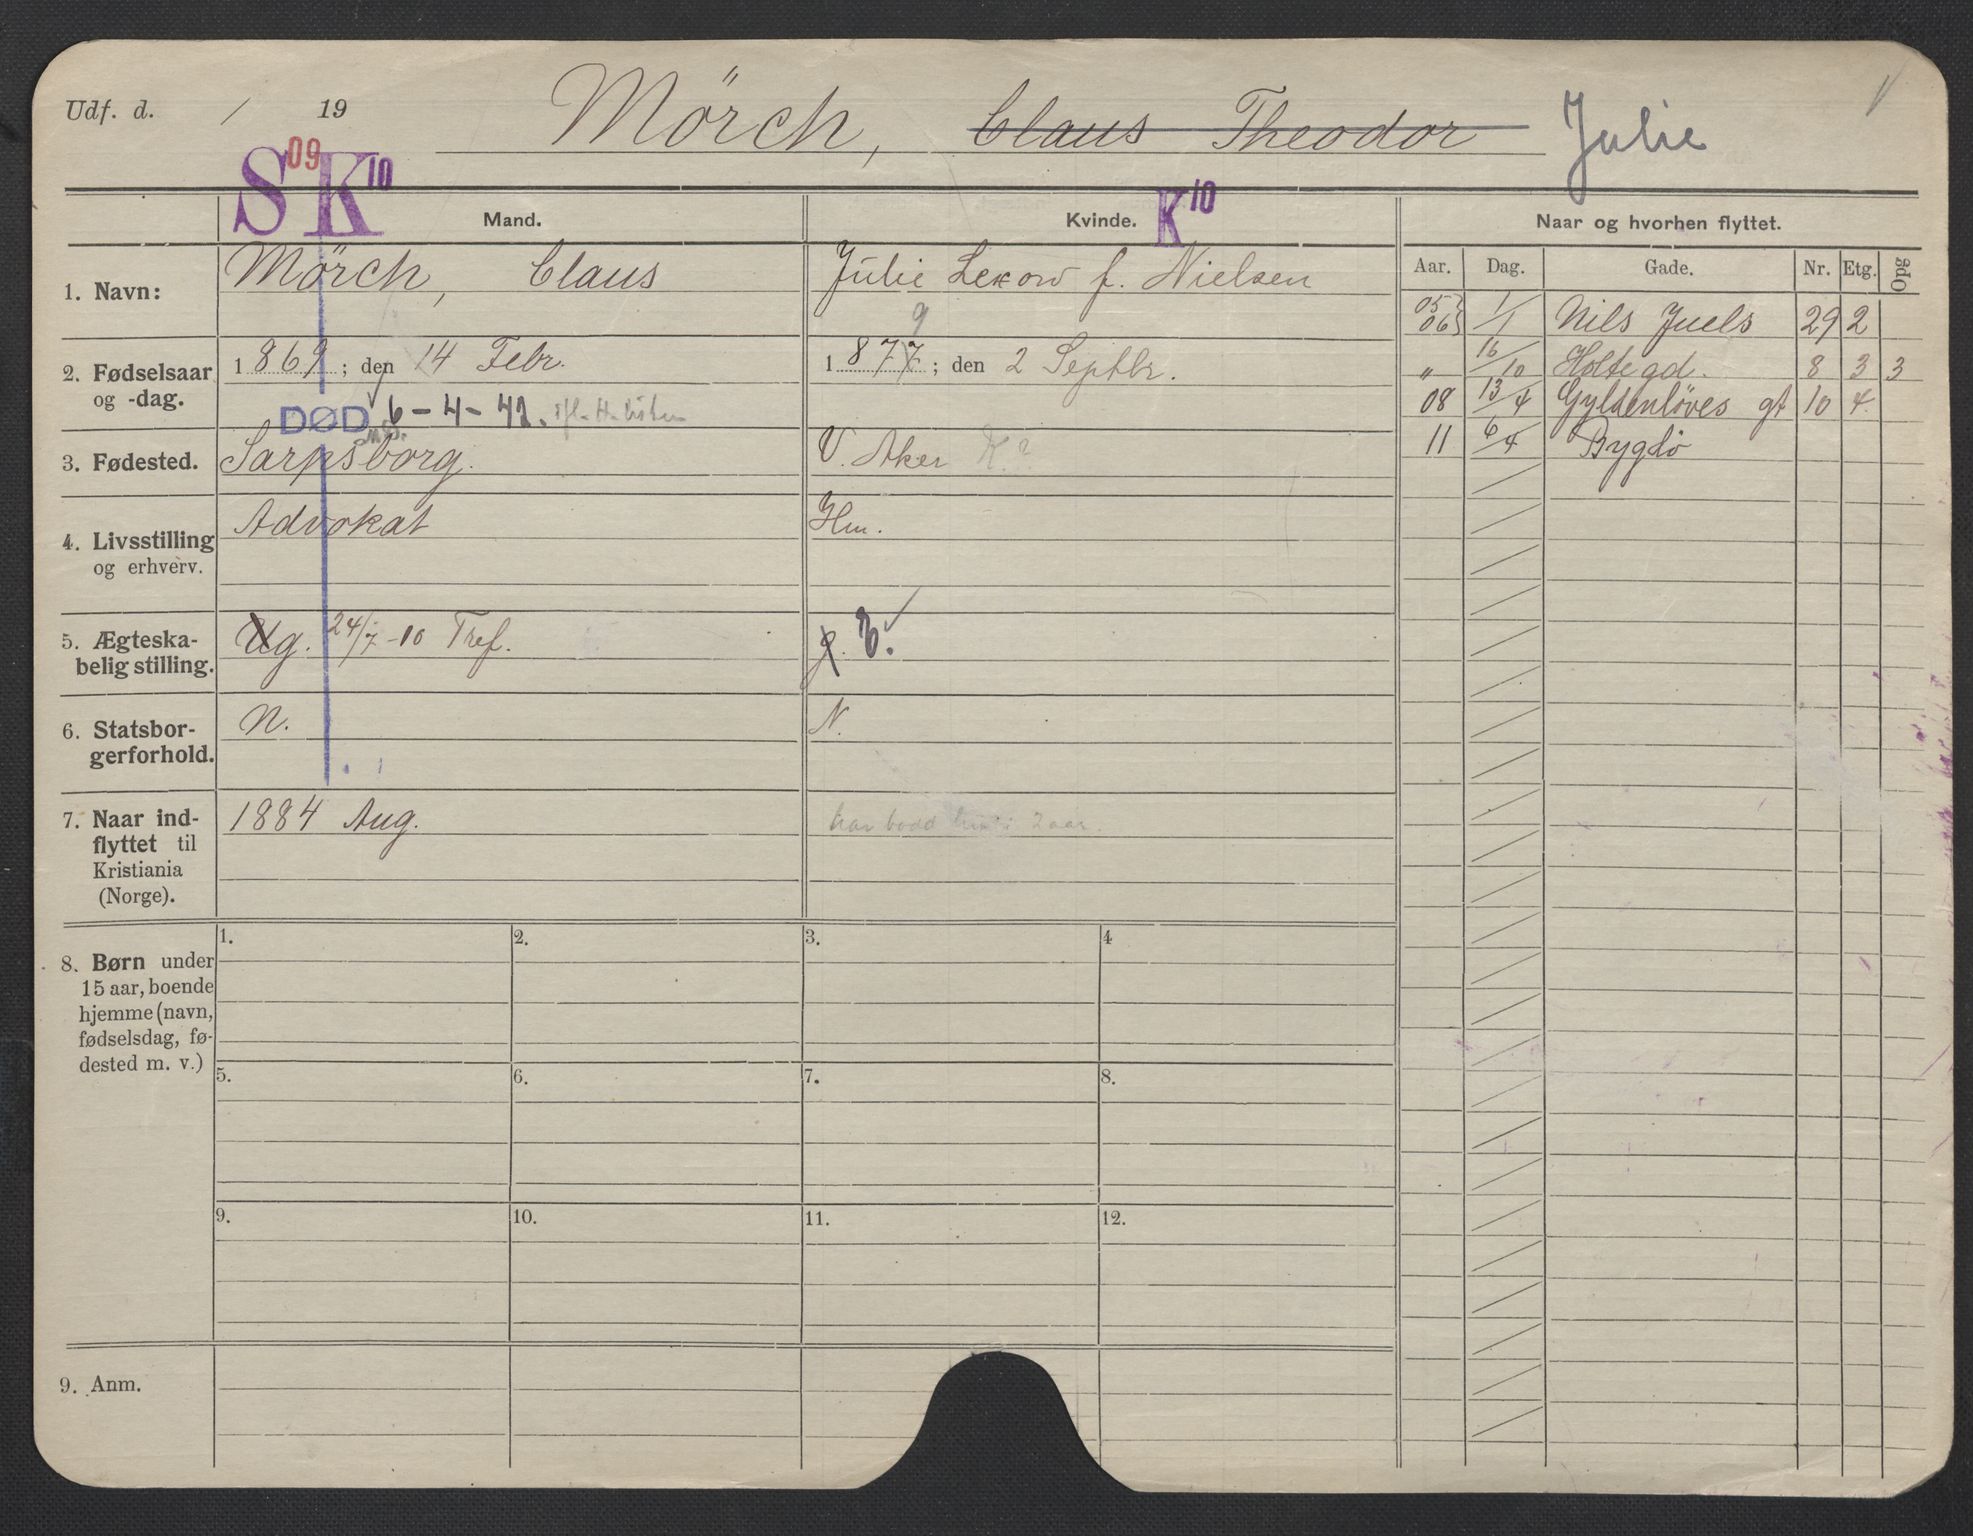 Udf. d. / 19 Mörch, Claus Theodor Julie
S 09 K 10
Mand. Kvinde. K 10 Naar og hvorhen flyttet.
Aar. Dag. Gade. Nr. Etg. Opg
1. Navn: Mörch, Claus Julie Lexow f. Nielsen
05 06 1/1 Nils Juels 29 2
9
2. Fødselsaar og -dag. 1869; den 14 Febr. 1877; den 2 Septbr.
" 16/10 Holtegd. 8 3 3
DØD 6-4-42.
08 13/4 Gyldenløves gt 10 4.
3. Fødested. Sarpsborg. V. Aker K?
11 6/4 Bygdø
4. Livsstilling og erhverv. Advokat Hm.
5. Ægteska-
belig stilling. Ug. 24/7-10 Tref. g. E.
6. Statsbor-
gerforhold. N. N.
7. Naar ind-
flyttet til
Kristiania
(Norge).
1884 Aug. har bodd her i 2 aar.
8. Børn under
15 aar, boende
hjemme (navn,
fødselsdag, fø-
dested m. v.)
1. 2. 3. 4
5. 6. 7. 8.
9. 10. 11. 12.
9. Anm.